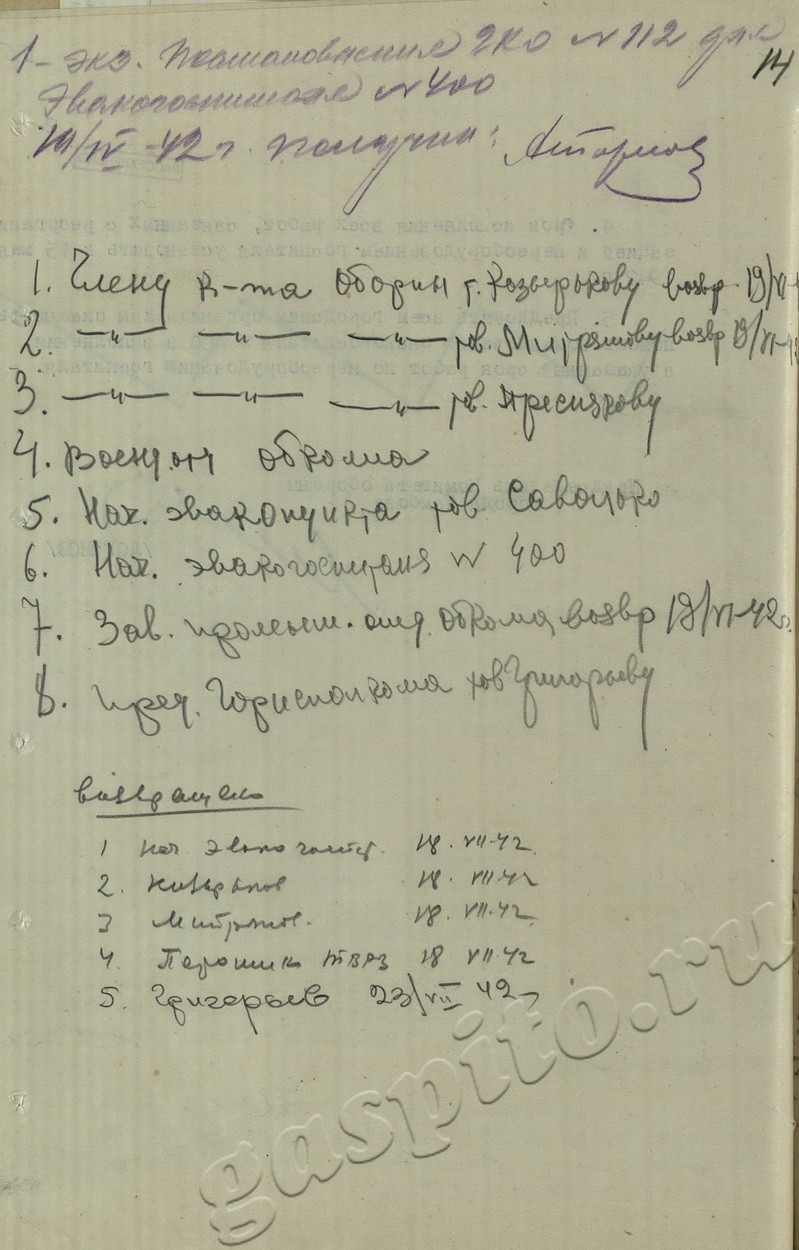 14
1 - экз. Постановления ГКО N 112 для
Эвакогоспиталя N 400
19/IV-42 г. получил:
1. Члену к-та Обороны т. Козырькову возвр. 19/VI-
2. —"— —"— —"— тов. Митряшову возвр 19/VI-42
3. —"— —"— —"— тов. Преснякову
4. Воен. отд обкома
5. Нач. эвакопункта тов. Савонько
6. Нач. эвакогоспиталя N 400
7. Зав. промышл. отд. Обкома, возвр 19/VI-42 г.
8. Пред. Горисполкома тов Григорьеву
возвращено
1 Нач Эвакогоспит. 18. VII-42
2. Козырьков 18. VII-42
3 Митряшов. 18. VII-42
4. ТВРЗ 18 VII-42
5. Григорьев 23/VII 42 г
gaspito.ru